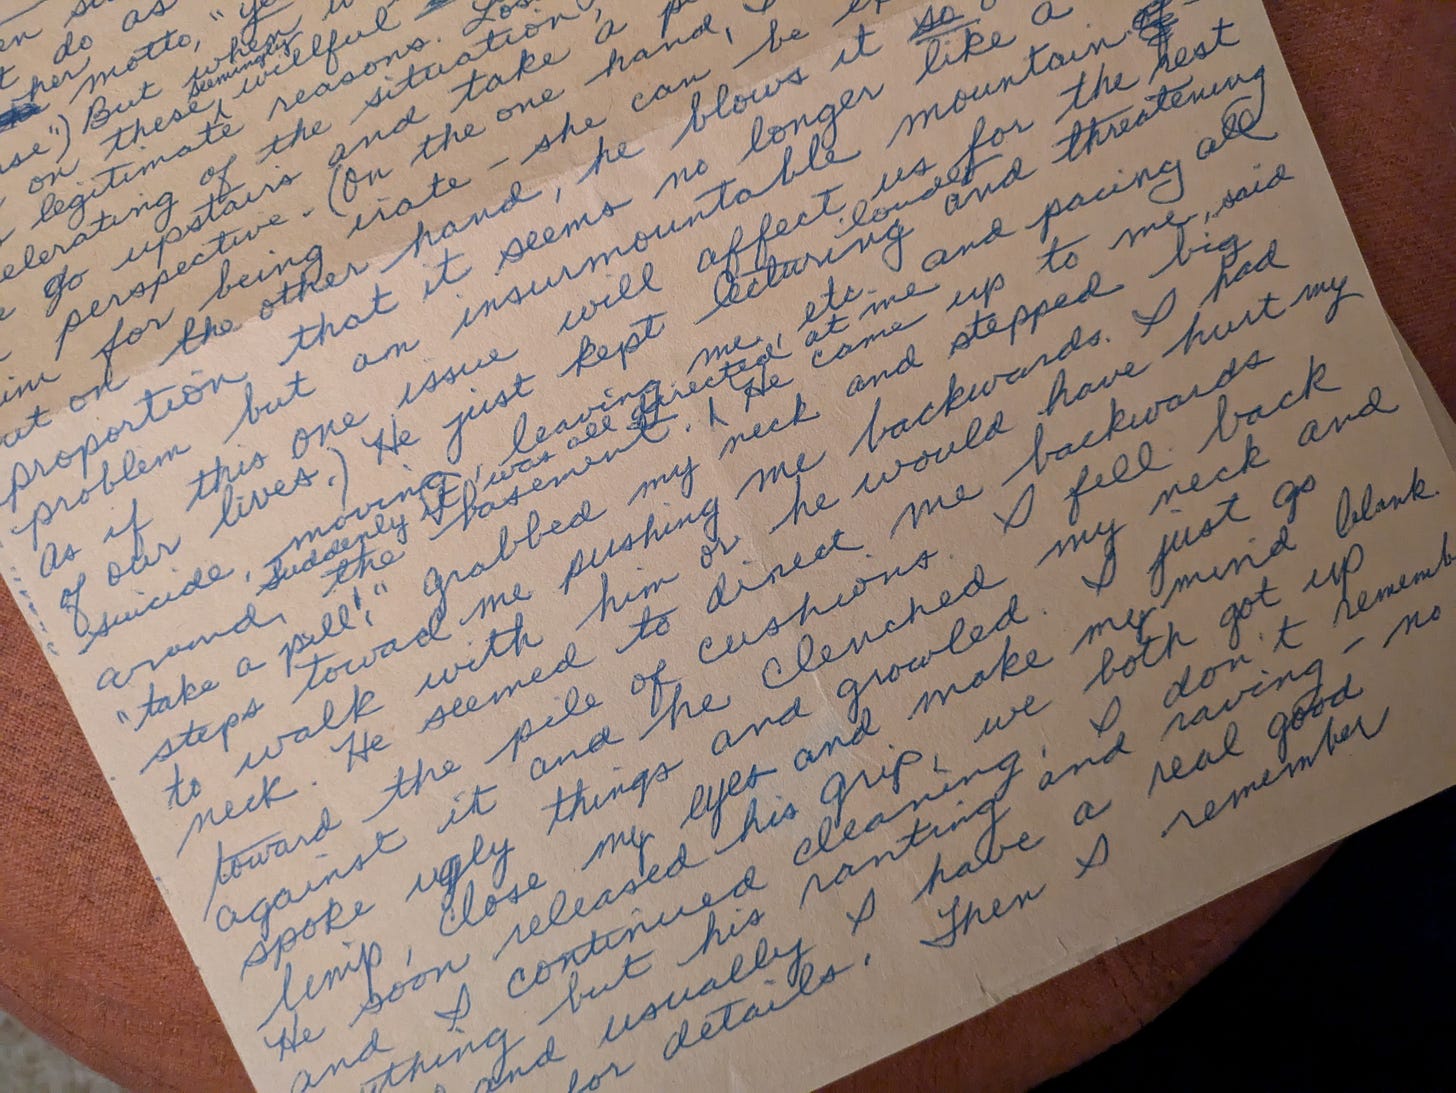 do as
motto, "ye
se") But when
on these seemingly willful
legitimate reasons. Los
elerating of the situation,
go upstairs and take a p
perspective. (On the one hand, I
im for being irate - she can be ex
at on the other hand, he blows it so
proportion that it seems no longer like a
problem but an insurmountable mountain.
as if this one issue will affect us for the rest
of our lives.) He just kept lecturing louder and threatening
suicide, moving, leaving me, etc.
around. Suddenly it was all directed at me and pacing all
the basement. He came up to me, said
"take a pill," grabbed my neck and stepped big
steps toward me pushing me backwards. I had
to walk with him or he would have hurt my
neck. He seemed to direct me backwards
toward the pile of cushions. I fell back
against it and he clenched my neck and
spoke ugly things and growled. I just go
limp, close my eyes and make my mind blank.
He soon released his grip, we both got up
and I continued cleaning, I don't rememb
ything but his ranting and raving - no
and usually I have a real good
for details. Then I remember